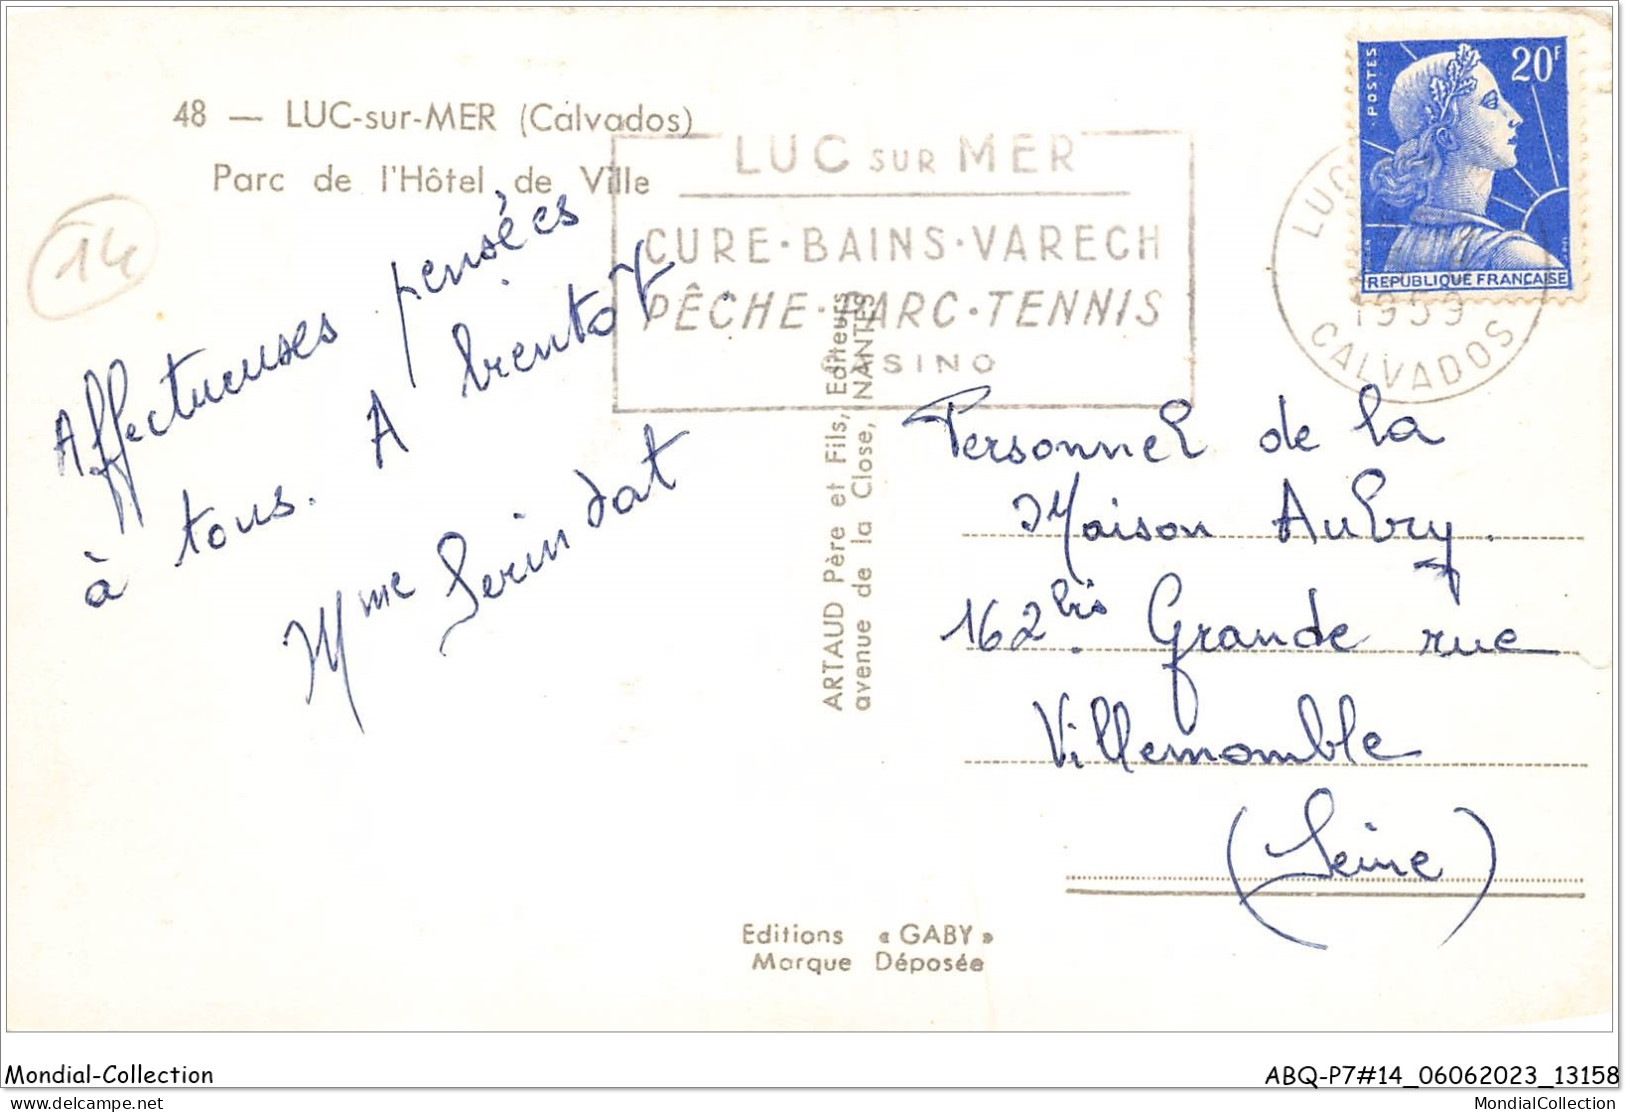 48 — LUC-sur-MER (Calvados)
Parc de l'Hôtel de Ville
14
LUC SUR MER
CURE·BAINS·VARECH
PÊCHE·PARC·TENNIS
SINO
POSTES
20F
REPUBLIQUE FRANÇAISE
LUC
1959
CALVADOS
Affectueuses pensées
à tous. A bientôt
Mme Serindat
ARTAUD Père et Fils, Editeurs
avenue de la Close, NANTES
Personnel de la
Maison Aubry.
162 bis Grande rue
Villemomble
(Seine)
Editions « GABY »
Marque Déposée
Mondial-Collection
ABQ-P7#14_06062023_13158
www.delcampe.net
MondialCollection